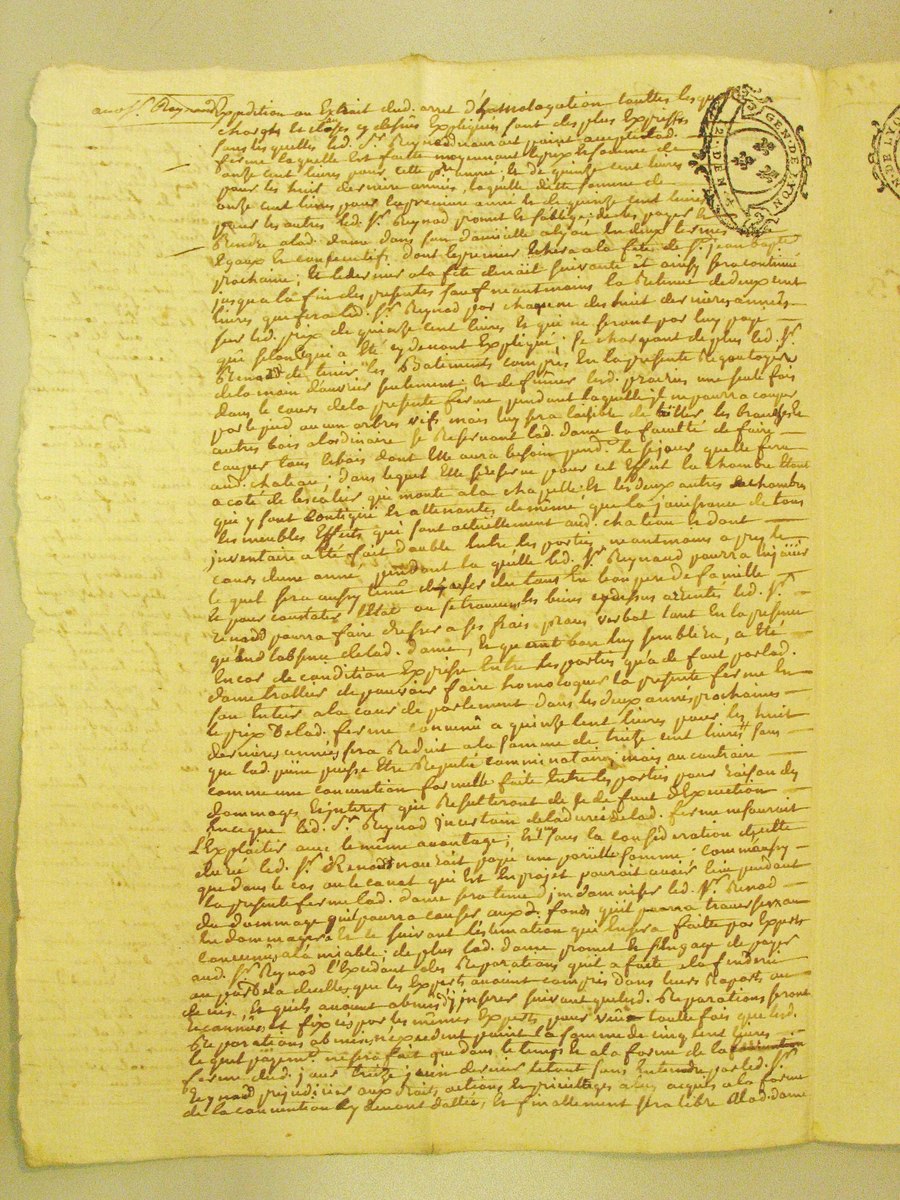 aud. Sr. Reynaud expedition ou Extrait dud. arret d'homologation touttes lesquelles
charges et clauses cy dessus Expliqués sont des plus Expresses
sans lesquelles led. Sr. Reynod nauroit point accepté lad.
ferme laquelle Est faitte moyennant le prix et somme de
onze cent livres pour cette pre. année, et de quinze cent livres
pour les huit dernieres années, laquelle ditte somme de
onze cent livres pour la premiere année et de quinze cent livres
pour les autres led. Sr. Reynod promet et soblige de les payer et
Rendre a lad. dame dans son domicille a lyon En deux termes
Egaux et consecutifs, dont le premier Echera a la féte de St. jean Bapte.
prochaine; et le dernier a la féte de noël suivante Et ainsy sera continué
jusques a la fin des presentes sauf neantmoins la Retenue de deux cent
livres que fera led. Sr. Reynod par chacune des huit dernieres années
sur led. prix de quinze cent livres Et qui ne seront par luy payé
que selon qui a Eté cy devant Expliqué; se chargeant de plus led. Sr.
Renaud de tenir les Batiments compris En la presente
de la main d'ouvrier seulement; et de fumer led. prairies une seule fois
dans le cours de la presente ferme pendant laquelle il ne pourra couper
par le pied aucun arbres vifs mais luy sera loisible de
autres bois a l'ordinaire se Reservant lad. dame la faculté de faire
couper tous les bois dont Elle aura besoin pendt. le séjour quelle fera
aud. chateau; dans lequel Elle se reserve pour cet Effet la chambre Etant
a coté de l'escalier qui monte a la chapelle Et les deux autres chambres
que y sont contigue et attenantes de méme que la jouissance de tous
les meubles Effets qui sont actuellement aud. chateau et dont
inventaire a Eté fait double Entre les parties neantmoins apres le
cours d'une année pendant laquelle led. Sr. Reynaud pourra
le quel sera aussy tenu d'user du tout En bon pere de famille
Et pour constater l'Etat ou se trouvent les biens cy dessus led. Sr.
renaud pourra faire dresser a ses frais procès verbal tant En la presence
qu'En l'absence de lad. dame, Et quant bon luy semblera, a Eté
Encor de condition Expresse Entre les parties qu'a de faut par lad.
dame de pouvoir faire homologuer la presente ferme En
son Entier a la cour de parlement dans les deux années prochaines
le prix de lad. ferme convenu a quinze cent livres pour les huit
dernieres années sera Reduit a la somme de treize cent livres sans
que lad. puisse Etre Reputée comminatoire, mais au contraire
comme une convention formelle faite Entre les parties pour raison des
dommages et interest qui Resulteront de le de faut d'Execution
En ce que led. Sr. Reynod incertain de la durée de lad. ferme ne sauroit
l'Exploiter avec le méme avantage; Et que sous la consideration de cette
durée led. Sr. Renaud nauroit payé une pareille somme; comm'aussy
que dans le cas ou le canal qui Est En projet pouroit avoir lieu pendant
la presente ferme lad. dame sera tenue d'indamniser led. Sr. Renod
du dommage qu'il pourra causer aux d. fonds qu'il pourra traverser ou
En dommager Et ce suivant l'estimation qui En sera faitte par Experts
convenus a lamiable; de plus lad. dame promet et s'engage de payer
aud. Sr. Reynod l'Excedant des Reparations qu'il a faite
au par dela de celles que les Experts avoient compris dans leurs Raports
Et qu'ils avoient obmis d'y inserer suivant que led. Reparations seront
reconnues et fixées par les mémes Experts toutte fois que led.
Reparations obmises n'excedent point la somme de cinq cent livres
le quel payemt. ne sera fait que dans le temps et a la forme de la
ferme dud. jour treize juin dernier le tout sans Entendre par led. Sr.
Reynaud prejudicier aux droits actions et privileges a luy acquis a la forme
de la convention cy devant dattée, Et finallement sera libre a lad. dame
GEN. DE LYON
2. DEN